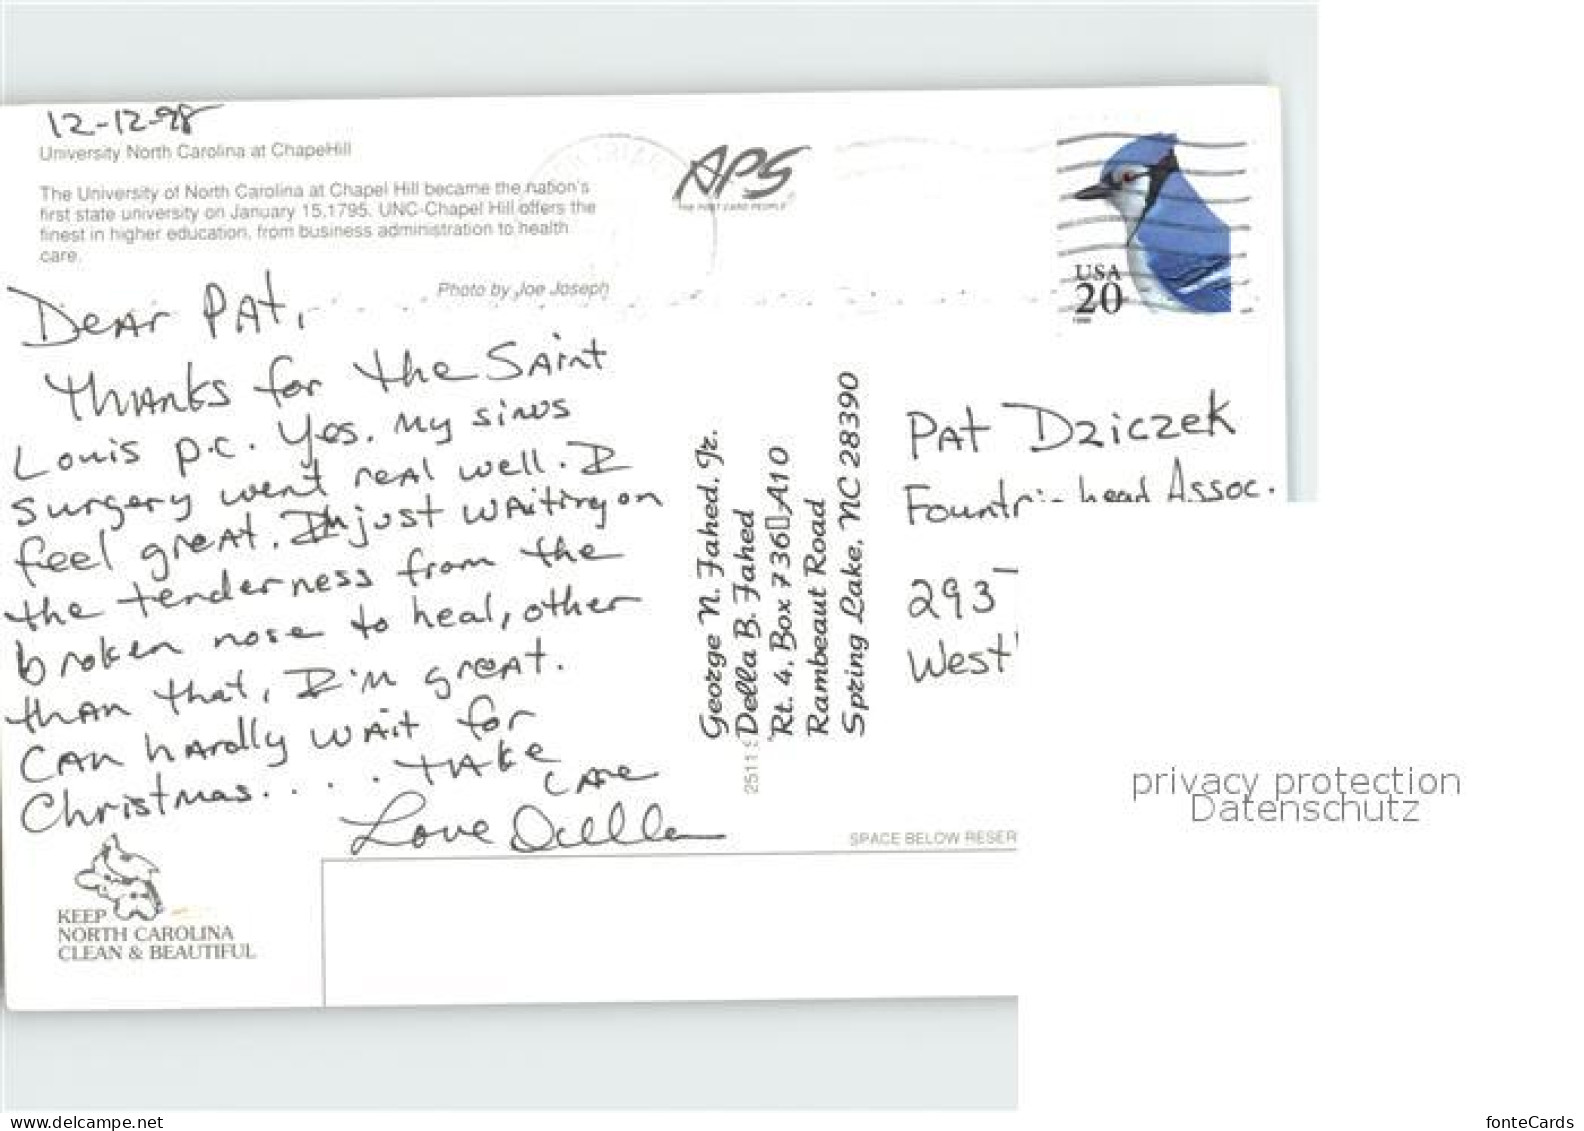 12-12-98
University North Carolina at ChapeHill
The University of North Carolina at Chapel Hill became the nation's
first state university on January 15,1795. UNC-Chapel Hill offers the
finest in higher education, from business administration to health
care.
Photo by Joe Joseph
Dear Pat,
Thanks for the Saint
Louis p.c. Yes. My sinus
surgery went real well. I
feel great. I'm just waiting on
the tenderness from the
broken nose to heal, other
than that, I'm great.
Can hardly wait for
Christmas.... take
care
Love Della
KEEP
NORTH CAROLINA
CLEAN & BEAUTIFUL
APS
THE POST CARD PEOPLE
USA
20
1998
George N. Fahed, Jr.
Della B. Fahed
Rt. 4, Box 736▯A10
Rambeaut Road
Spring Lake, NC 28390
2511
Pat Dziczek
head Assoc.
293
West
SPACE BELOW RESER
privacy protection
Datenschutz
www.delcampe.net
fonteCards